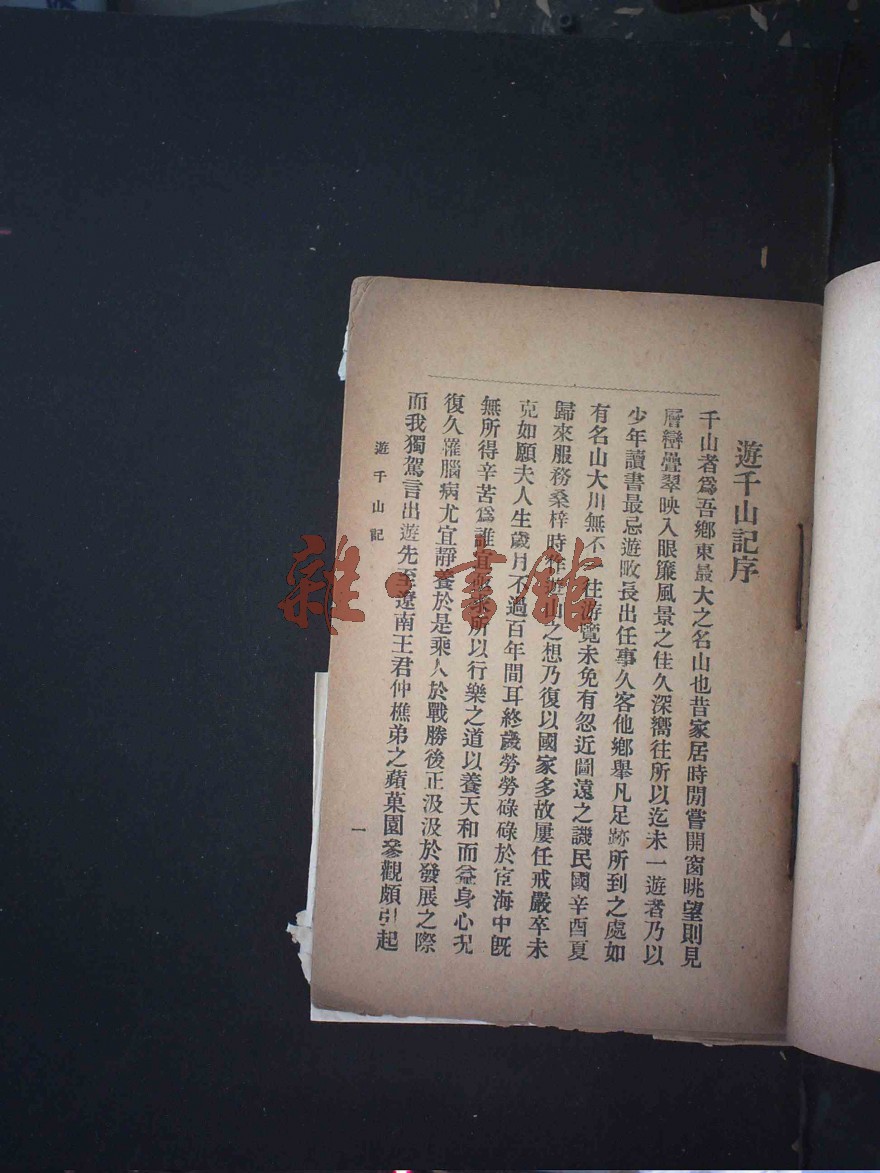 遊千山記序
千山者爲吾鄉東最大之名山也昔家居時閒嘗開窗眺望則見
層巒疊翠映入眼簾風景之佳久深嚮往所以迄未一遊者乃以
少年讀書最忌遊畋長出任事久客他鄉舉凡足跡所到之處如
有名山大川無不 往游覽未免有忽近圖遠之譏民國辛酉夏
歸來服務桑梓時作遊山之想乃復以國家多故屢任戒嚴卒未
克如願夫人生歲月不過百年間耳終歲勞勞碌碌於宦海中旣
無所得辛苦爲誰宜 求所以行樂之道以養天和而益身心况
復久罹腦病尤宜靜養於是乘人於戰勝後正汲汲於發展之際
而我獨駕言出遊先至遼南王君仲樵弟之蘋菓園參觀頗引起
遊千山記
一
雜·書館